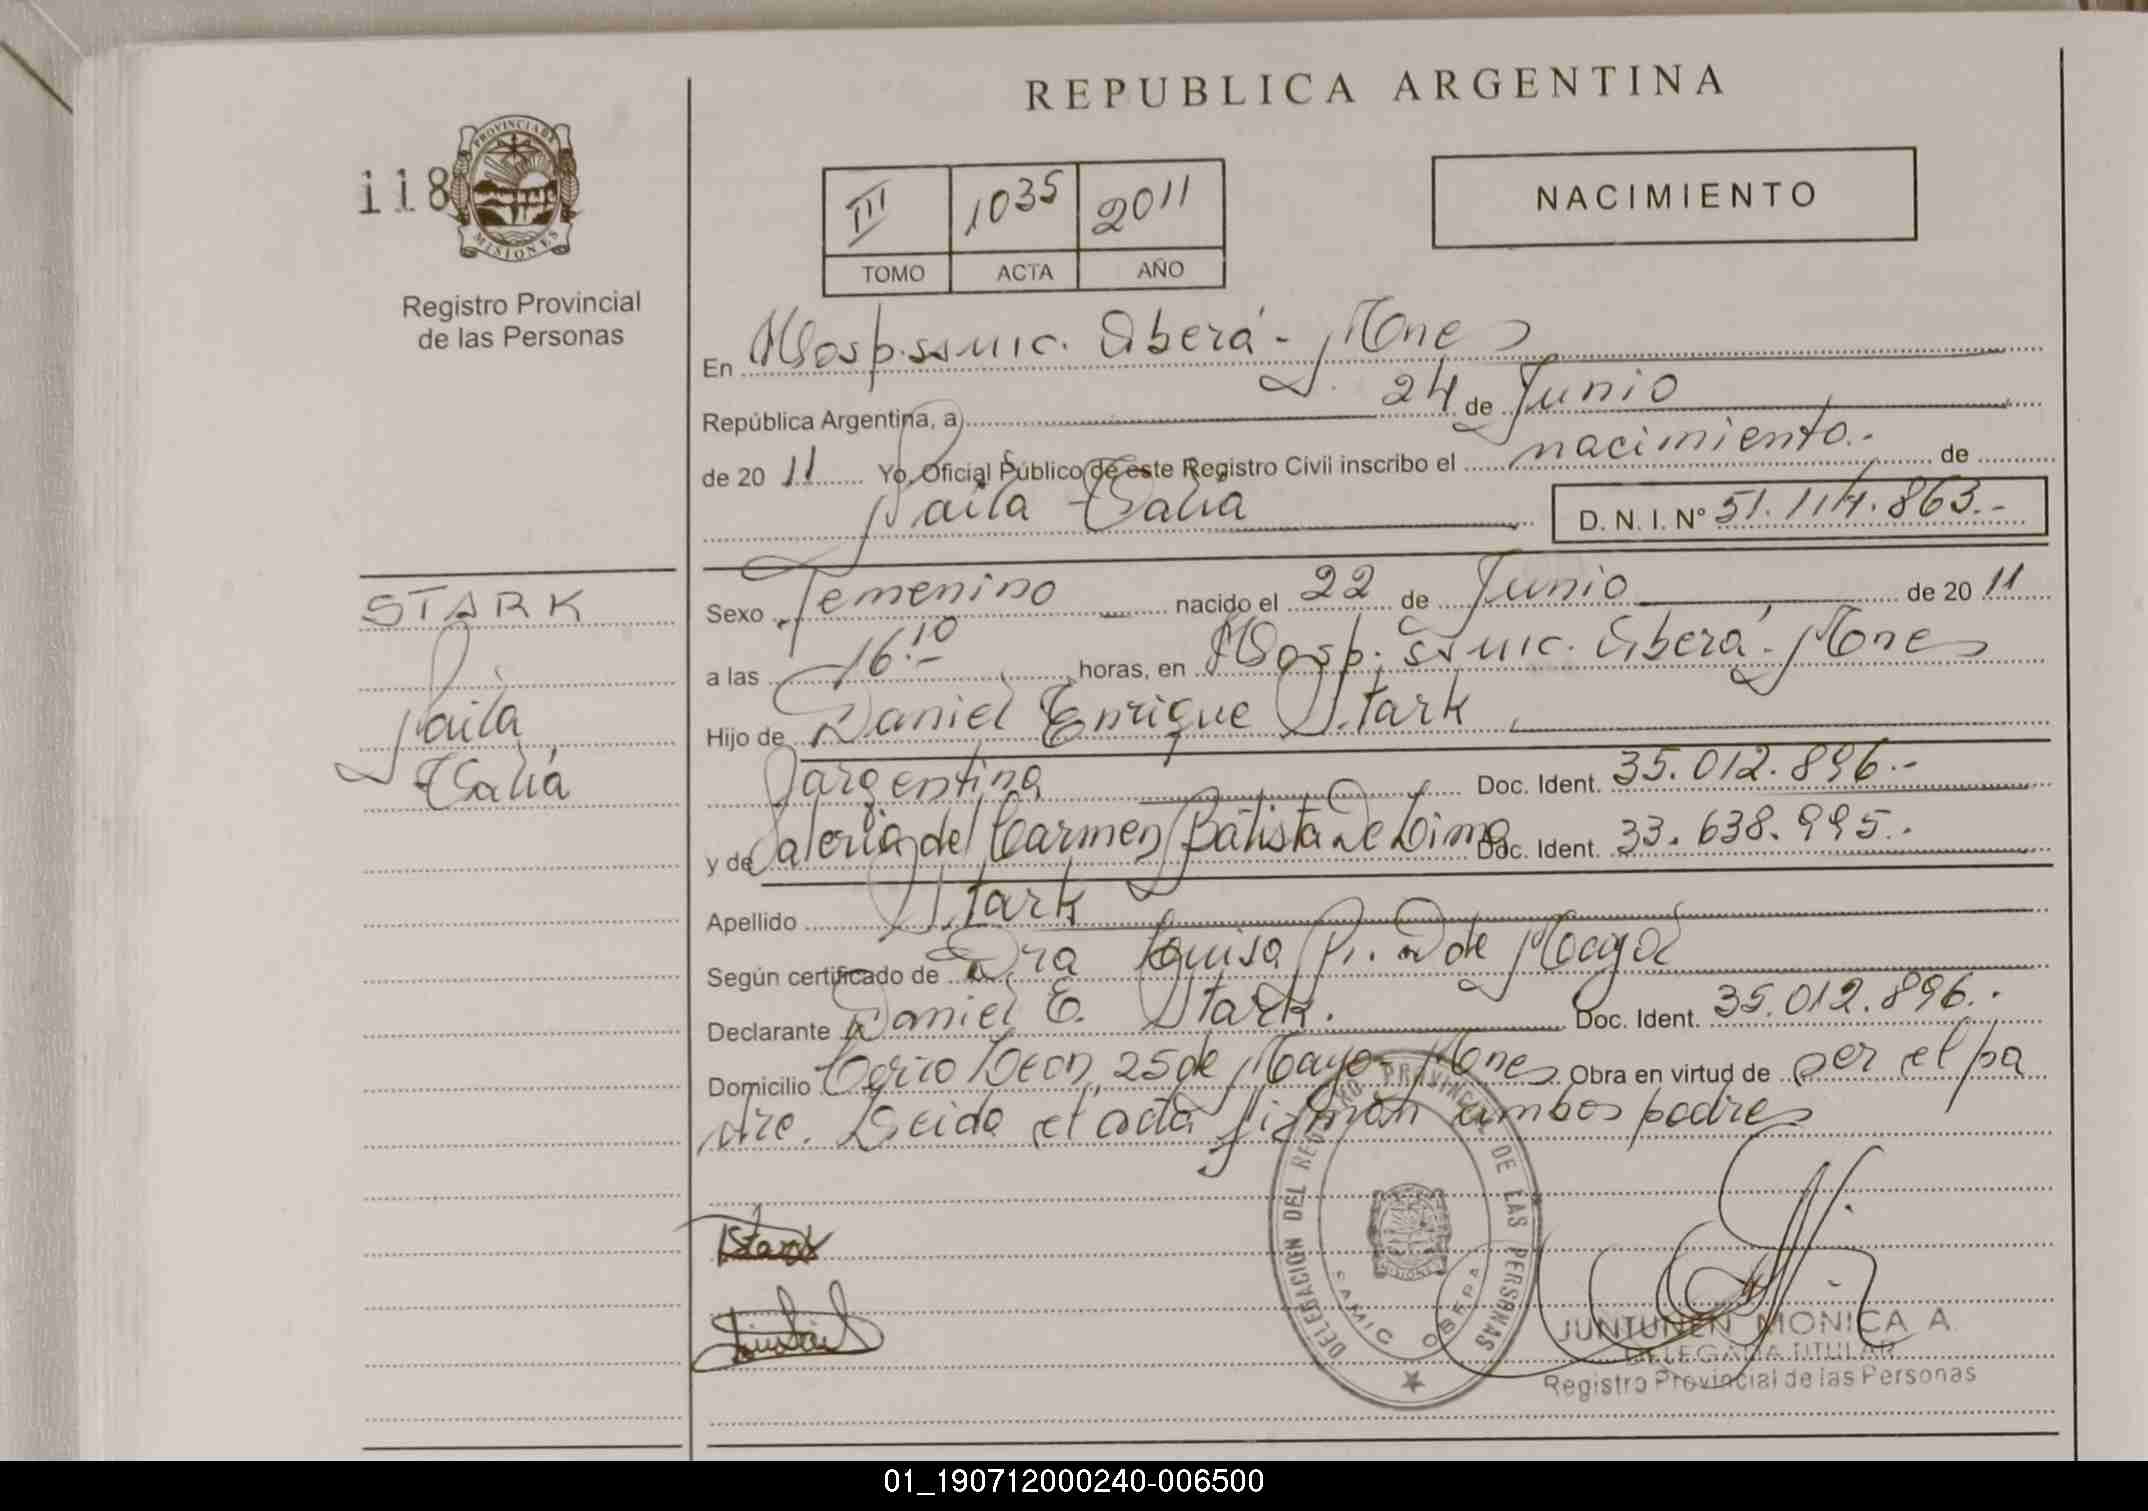 REPUBLICA ARGENTINA
118
PROVINCIA DE
MISIONES
Registro Provincial
de las Personas
III 1035 2011
TOMO ACTA AÑO
NACIMIENTO
En Hosp. ssmic. Oberá - Mnes
República Argentina, a 24 de Junio
de 20 11 Yo, Oficial Público de este Registro Civil inscribo el nacimiento.- de
Naila Talia
D. N. I. Nº 51.114.863.-
STARK
Naila
Talía
Sexo Femenino nacido el 22 de Junio de 20 11
a las 16.10 horas, en Hosp. ssmic. Oberá - Mnes
Hijo de Daniel Enrique Stark
argentina Doc. Ident. 35.012.896.-
y de Valeria del Carmen Batista De Lima Doc. Ident. 33.638.995.-
Apellido Stark
Según certificado de Dra Luisa de
Declarante Daniel E. Stark. Doc. Ident. 35.012.896.-
Domicilio Cerro León, 25 de Mayo - Mnes Obra en virtud de ser el pa
dre. Leida el acta firman ambos padres
Stark
DELEGACION DEL REGISTRO PROVINCIAL DE LAS PERSONAS
SAMIC OBERA
JUNTUNEN MONICA A.
DELEGADA TITULAR
Registro Provincial de las Personas
01_190712000240-006500